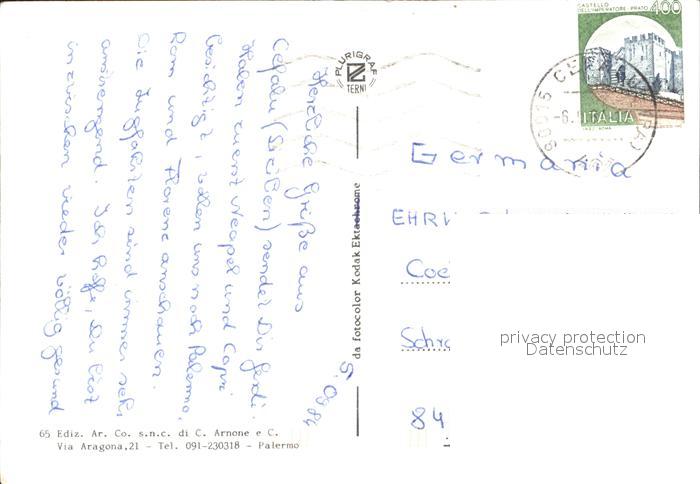 Herzliche Grüße aus
Cefalu (Sizilien) sendet Dir Gerdi.
Haben zuerst Neapel und Capri
besichtigt, wollen uns noch Palermo,
Rom und Florenz anschauen.
Die Zugfahrten sind immer sehr
anstrengend. Ich hoffe, Du bist
inzwischen wieder völlig gesund
5.9.84
PLURIGRAF
TERNI
da fotocolor Kodak Ektachrome
CASTELLO
DELL'IMPERATORE - PRATO
400
ITALIA
90015 CE
-6.
(PA)
Germania
EHRW
Coe
Schr
84
privacy protection
Datenschutz
65 Ediz. Ar. Co. s.n.c. di C. Arnone e C.
Via Aragona,21 - Tel. 091-230318 - Palermo